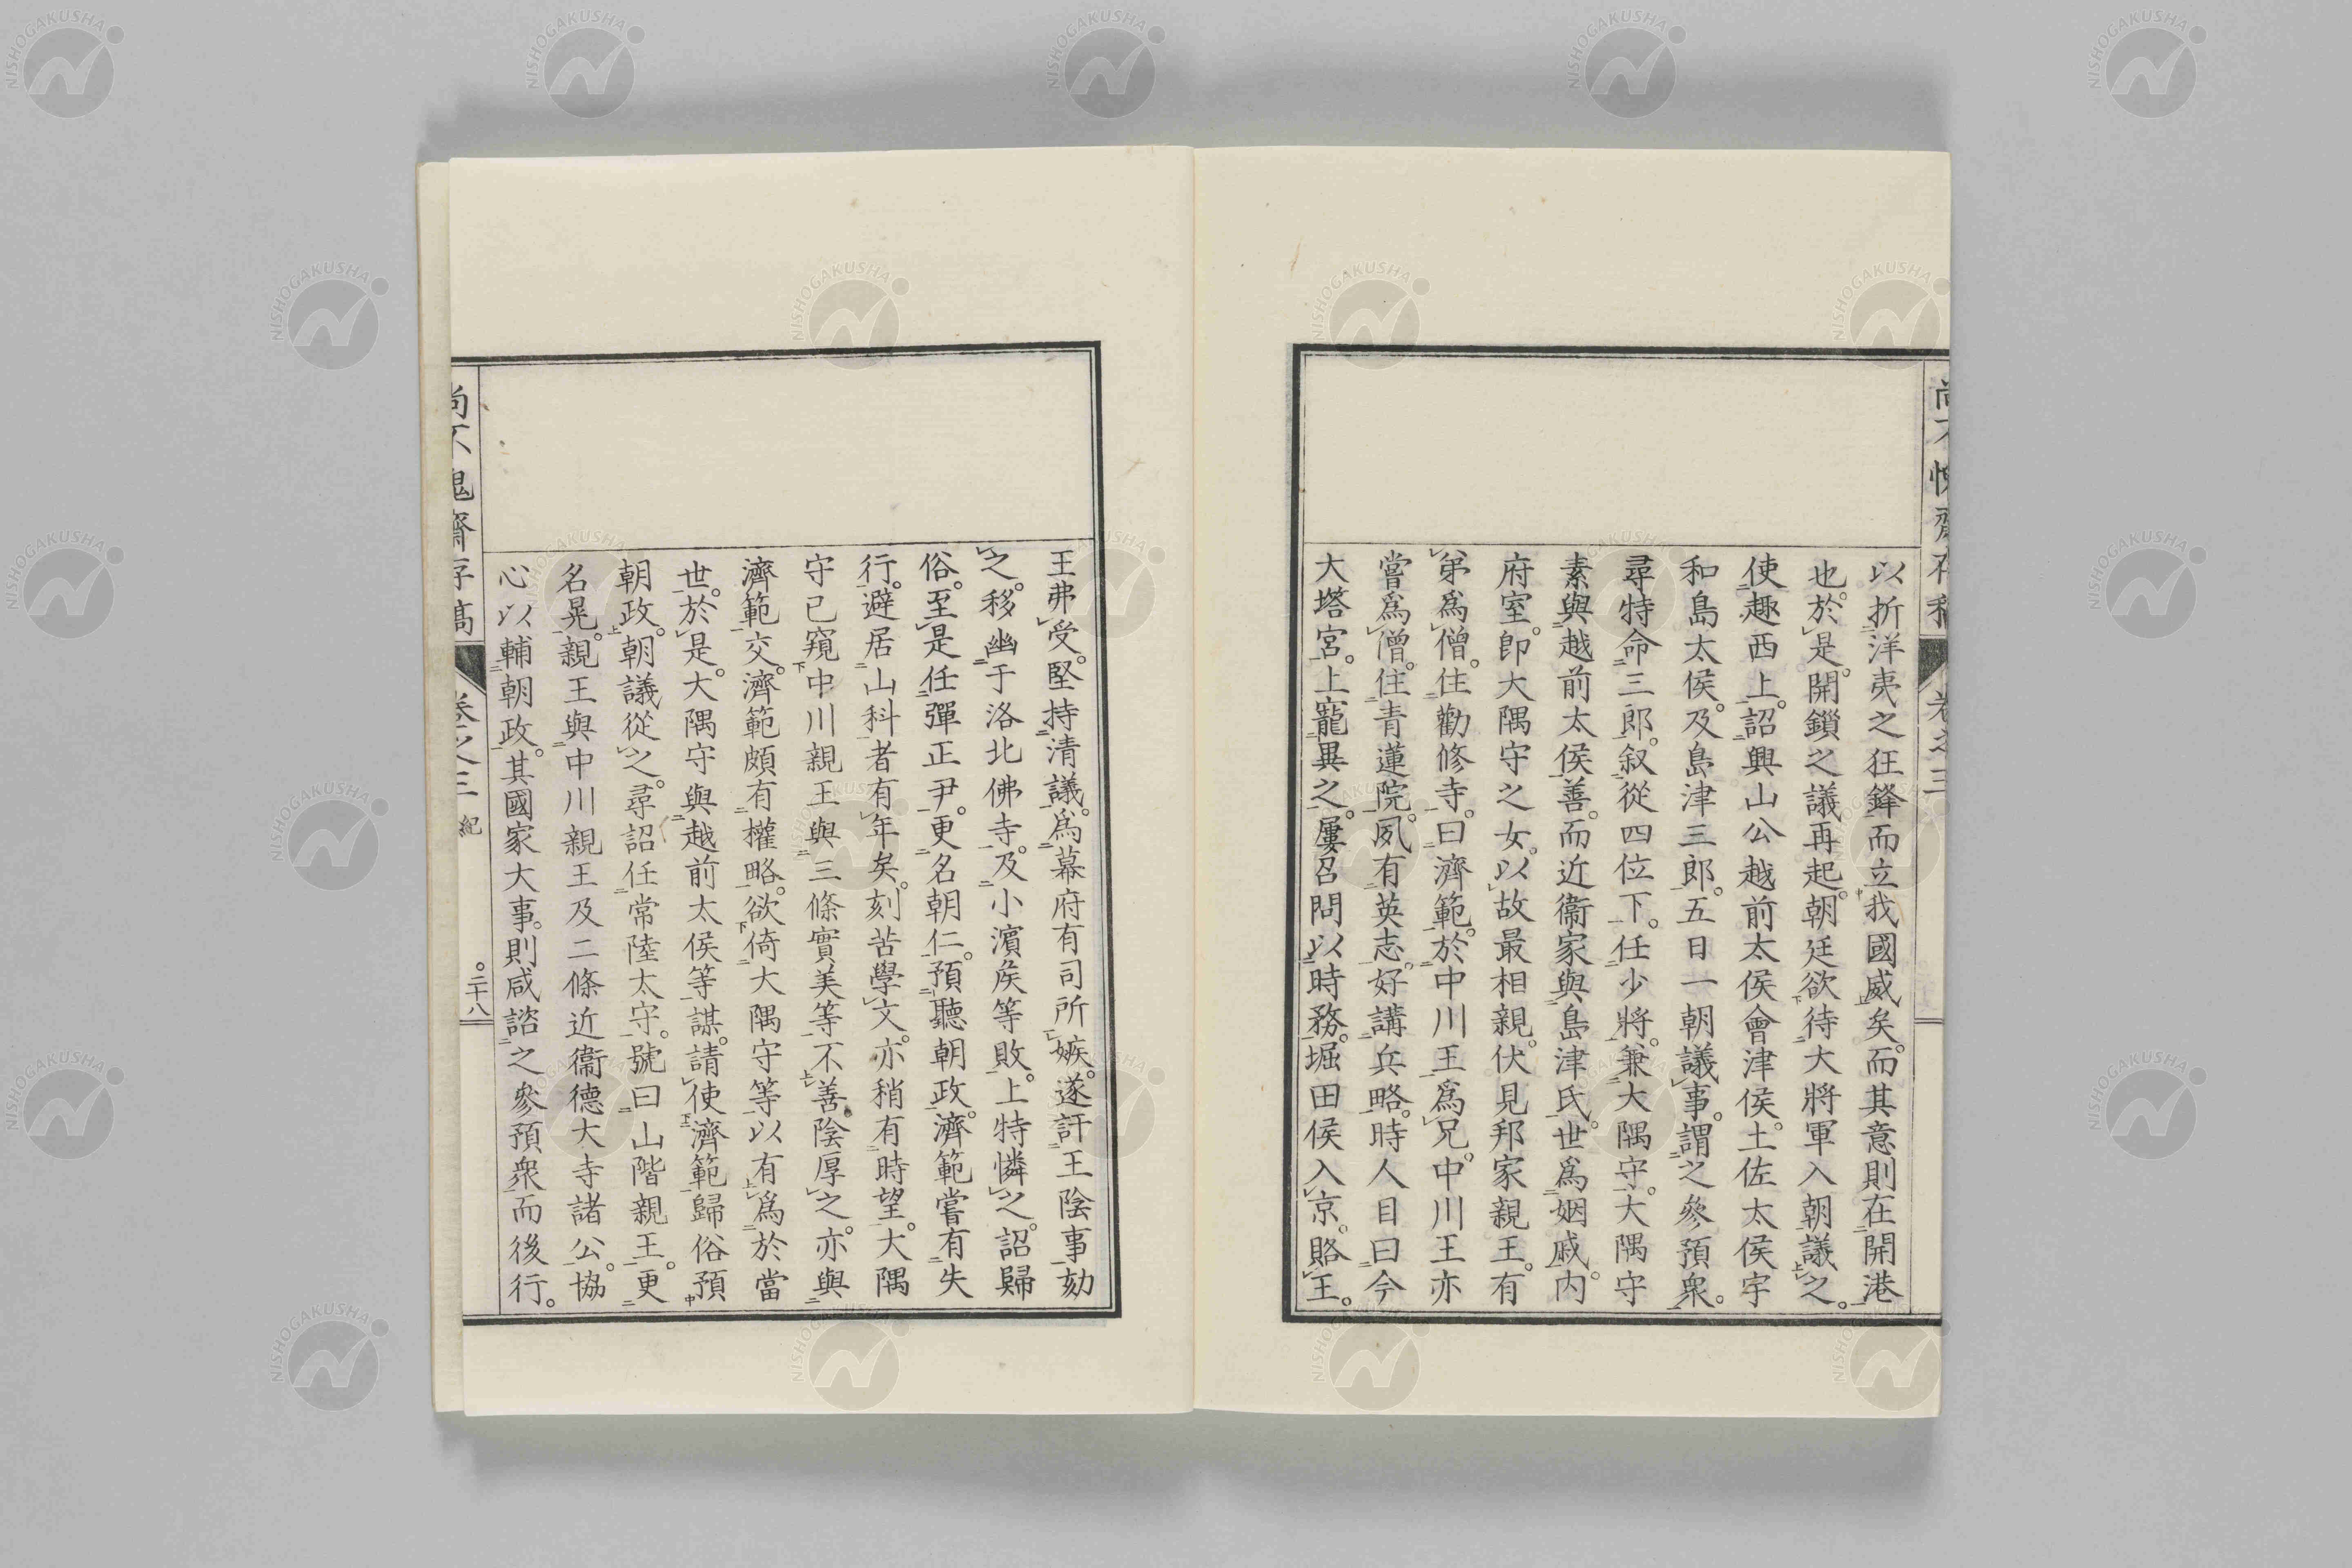 以折洋夷之狂鋒而立我國威矣。而其意則在開港
也。於是。開鎖之議再起。朝廷欲待大將軍入朝議之。
使趣西上。詔興山公越前太侯會津侯。土佐太侯宇
和島太侯。及島津三郎。五日一朝議事。謂之參預衆。
尋特命三郎。叙從四位下。任少將。兼大隅守。大隅守
素與越前太侯善。而近衞家與島津氏。世爲姻戚。内
府室。卽大隅守之女。以故最相親。伏見邦家親王。有
弟爲僧。住勸修寺。曰濟範。於中川王爲兄。中川王亦
嘗爲僧。住青蓮院。夙有英志。好講兵略。時人目曰今
大塔宮。上寵異之。屢召問以時務。堀田侯入京。賂王。
王弗受。堅持清議。爲幕府有司所嫉。遂訐王陰事劾
之。移幽于洛北佛寺。及小濱侯等敗。上特憐之。詔歸
俗。至是任彈正尹。更名朝仁。預聽朝政。濟範嘗有失
行。避居山科者有年矣。刻苦學文。亦稍有時望。大隅
守已窺中川親王與三條實美等不善。陰厚之。亦與
濟範交。濟範頗有權略。欲倚大隅守等以有爲於當
世。於是。大隅守與越前太侯等謀。請使濟範歸俗預
朝政。朝議從之。尋詔任常陸太守。號曰山階親王。更
名晃。親王與中川親王及二條近衞德大寺諸公。協
心以輔朝政。其國家大事。則咸諮之參預衆而後行。
卷之三 紀
二十八
NISHOGAKUSHA